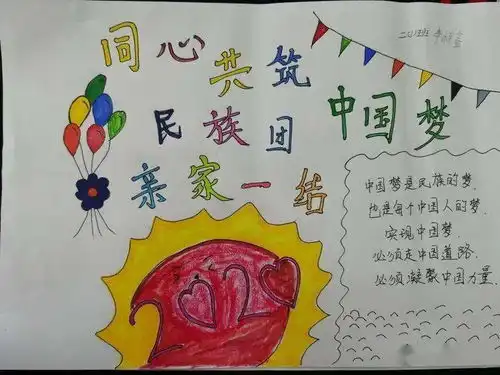 同心共筑
中国梦
民族团
亲家一结
2020
中国梦是民族的梦.
也是每个中国人的梦.
实现中国梦
必须走中国道路.
必须凝聚中国力量.